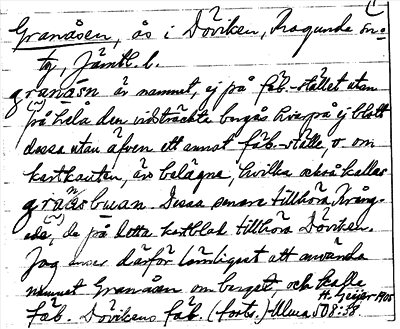 Granåsen, ås i Döviken, Ragunda sn:
tg, Jämtl. l.
granåsn är namnet, ej på fäb.-stället utan
på hela den vidsträckta bergås hvarpå ej blott
dessa utan äfven ett annat fäb.-ställe, v. om
kartkanten, äro belägne, hvilka också kallas
granåsbuan. Dessa senare tillhöra Kräng-
ede, de på detta kartblad tillhöra Döviken.
Jag anser därför lämpligast att använda
namnet Granåsen om berget och kalla
H. Geijer 1905
fäb. Dövikens fäb. (forts.) Ullvia 508:38